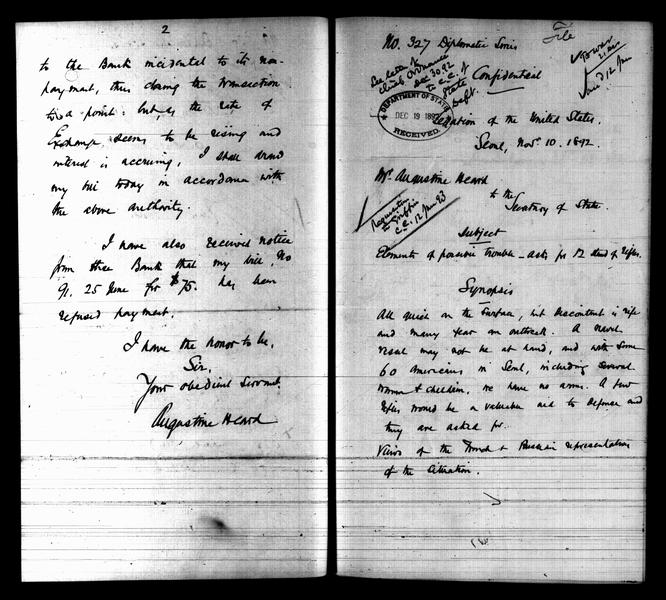 2
to the Bank incidental to its non-
payment, thus closing the transaction
to a point: but, as the rate of
Exchange seems to be rising and
interest is accruing, I shall draw
my bill today in accordance with
the above authority.
I have also received notice
from the Bank that my bill, No
91. 25 June for $75. has been
refused payment.
I have the honor to be,
Sir,
Your obedient Servant
Augustine Heard
File
No. 327 Diplomatic Series
Dec 30.92
to C.C. of
State
Dept.
Confidential
DEPARTMENT OF STATE
DEC 19 1892
RECEIVED.
Legation of the United States.
Seoul, Novr 10. 1892.
Mr. Augustine Heard
to the
Secretary of State.
Subject
Elements of possible trouble - asks for 12 stand of rifles.
Synopsis
All quiet on the surface, but discontent is rife
and many fear an outbreak. A naval
vessel may not be at hand, and with some
60 Americans in Seoul, including several
women & children, we have no arms. A few
rifles would be a valuable aid to defense and
they are asked for.
Views of the French & Russian representatives
of the situation.